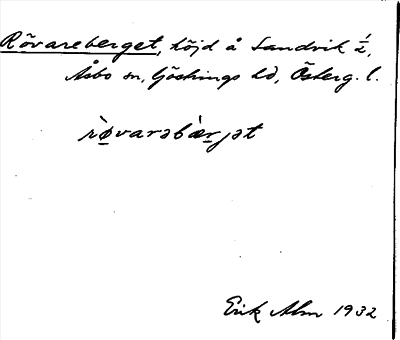 Rövareberget, höjd å Sandvik ½,
Åsbo sn, Göstrings hd, Österg. l.
rø̀varəbæ̀rjət
Erik Alm 1932